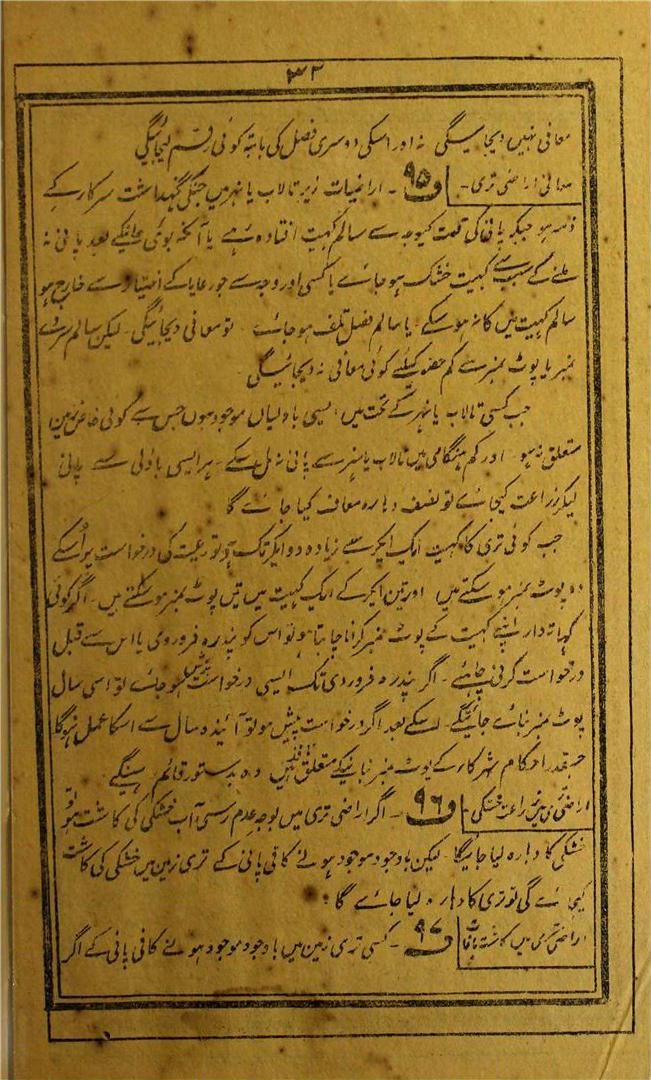 ۳۲
معافی نہیں دیجائیگی نہ اور اسکی دوسری فصل کی بابتہ کوئی رقم لیجائیگی
معافی اراضی تری۔ ف ۹۵ ۔ اراضیات زیر تالاب یا نہر میں جنکی نگہداشت سرکار کے
ذمہ ہو جبکہ پانی کی قلت کیوجہ سے سالم کہیت افتادہ رہے یا آنکہ بوئی جانیکے بعد پانی نہ
ملنے کے سبب سے کہیت خشک ہو جائے یا کسی اور وجہ سے جو رعایا کے اختیار سے خارج ہو
سالم کہیت میں کاٹ نہ ہو سکے۔ یا سالم فصل تلف ہو جائے۔ تو معافی دیجائیگی۔ لیکن سالم سروے
نمبر یا پوٹ نمبر سے کم حصہ کیلئے کوئی معافی نہ دیجائیگی
جب کسی تالاب یا نہر کے تحت میں ایسی باولیاں موجود ہوں جس سے کوئی خاص زمین
متعلق نہ ہو اور کم ہنگامی میں تالاب یا نہر سے پانی نہ مل سکے۔ ہر ایسی باولی سے پانی
لیکر زراعت کیجائے تو نصف دہارہ معاف کیا جائے گا
جب کوئی تری کا کہیت ایک ایکر سے زیادہ دو ایکر تک ہو تو رعیت کی درخواست پر اُسکے
دو پوٹ نمبر ہو سکتے ہیں اور تین ایکر کے ایک کہیت میں تین پوٹ نمبر ہو سکتے ہیں۔ اگر کوئی
کہاتہ دار اپنے کہیت کے پوٹ نمبر کرانا چاہتا ہو تو اس کو پندرہ فروردی یا اس سے قبل
درخواست کرنی چاہئے۔ اگر پندرہ فروردی تک ایسی درخواست پیش ہو جائے تو اسی سال
پوٹ نمبر بنائے جائینگے۔ اسکے بعد اگر درخواست پیش ہو تو آئندہ سال سے اسکا عمل ہوگا
جسقدر احکام شرکاء کے پوٹ نمبر بنانیکے متعلق نافذ ہیں وہ بدستور قائم رہینگے
اراضی تری میں زراعت خشکی۔ ف ۹۶ ۔ اگر اراضی تری میں بوجہ عدم رسی آب خشکی کی کاشت ہو تو
خشکی کا دہارہ لیا جائیگا۔ لیکن باوجود موجود ہونے کافی پانی کے تری زمین میں خشکی کی کاشت
کیجائے گی تو تری کا دہارہ لیا جائے گا
اراضی تری میں کاشت باغات ف ۹۷ ۔ کسی تری زمین میں باوجود موجود ہونے کافی پانی کے اگر